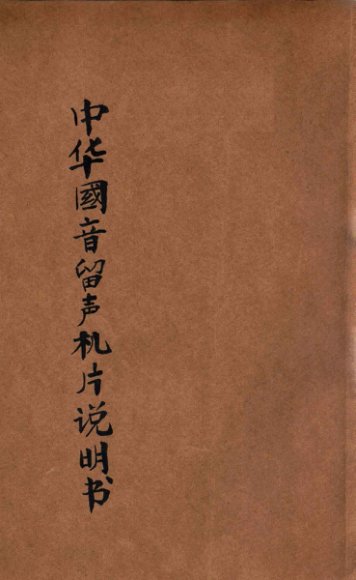 中华國音留声机片说明书